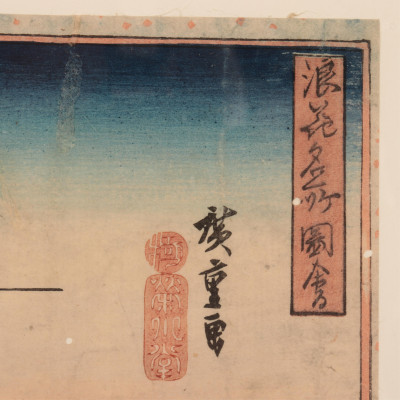 浪花名所圖會
廣重画